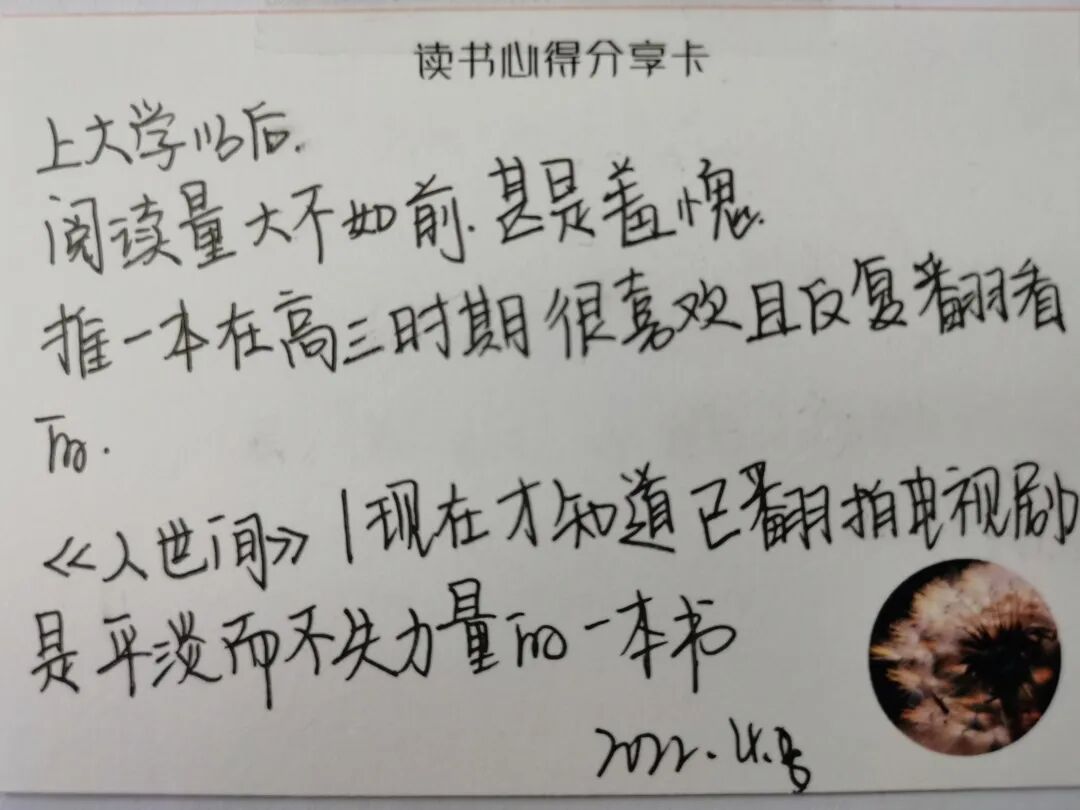 读书心得分享卡
上大学以后.
阅读量大不如前.甚是羞愧.
推一本在高三时期很喜欢且反复翻看
的.
《人世间》|现在才知道已翻拍电视剧
是平淡而不失力量的一本书
2022.4.8